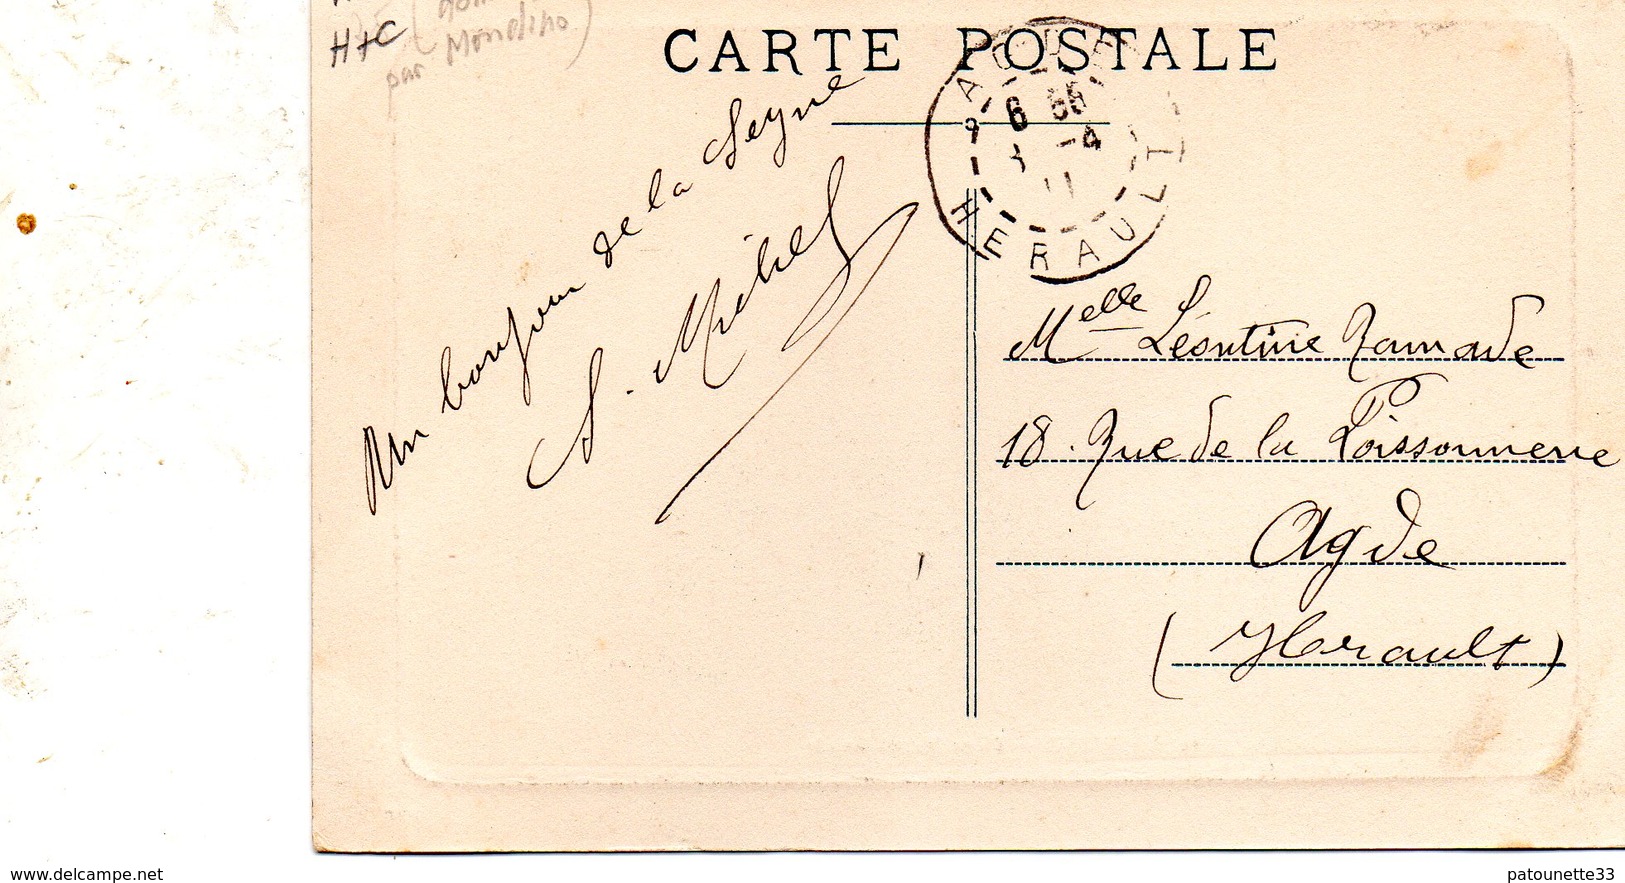 H+C
par Mondino)
CARTE POSTALE
AGDE
6 55
-4
11
HERAULT
Un bonjour de la Seyne
S. Michel
Melle Léontine Ramade
18. Rue de la Poissonnerie
Agde
(Hérault)
www.delcampe.net
patounette33